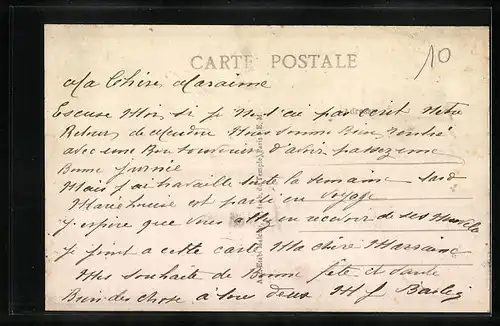 CARTE POSTALE
10
Ma Chère Maraine
Escuse Moi, si je ne t'ai pas ecrit Notre
Retour de Meudon Nous somme Bien rentré
avec une Bon souvenir d'avoir passez une
Bonne journée
Mais j'ai travaille toute la semaine
Marie Louise est partie en voyage
j'espere que vous allez en recevoir de ses
Je joint a cette carte Ma chère Marraine
Mes souhaits de Bonne fete et Santé
Bien des chose à tous deux M J